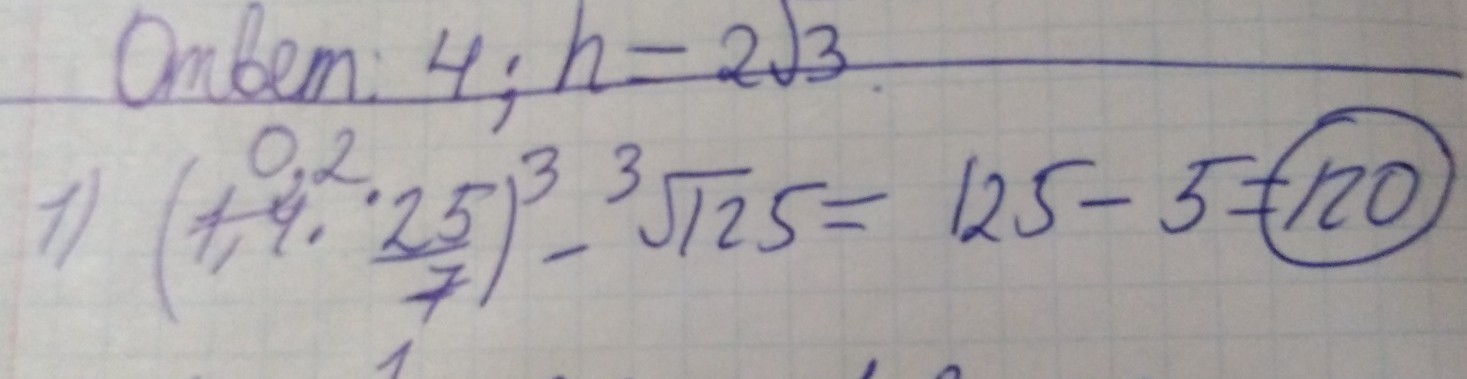 Ответ: 4; h - 2√3.
0,2
1) (1,4 · 25/7)³ - ³√125 = 125 - 5 = 120